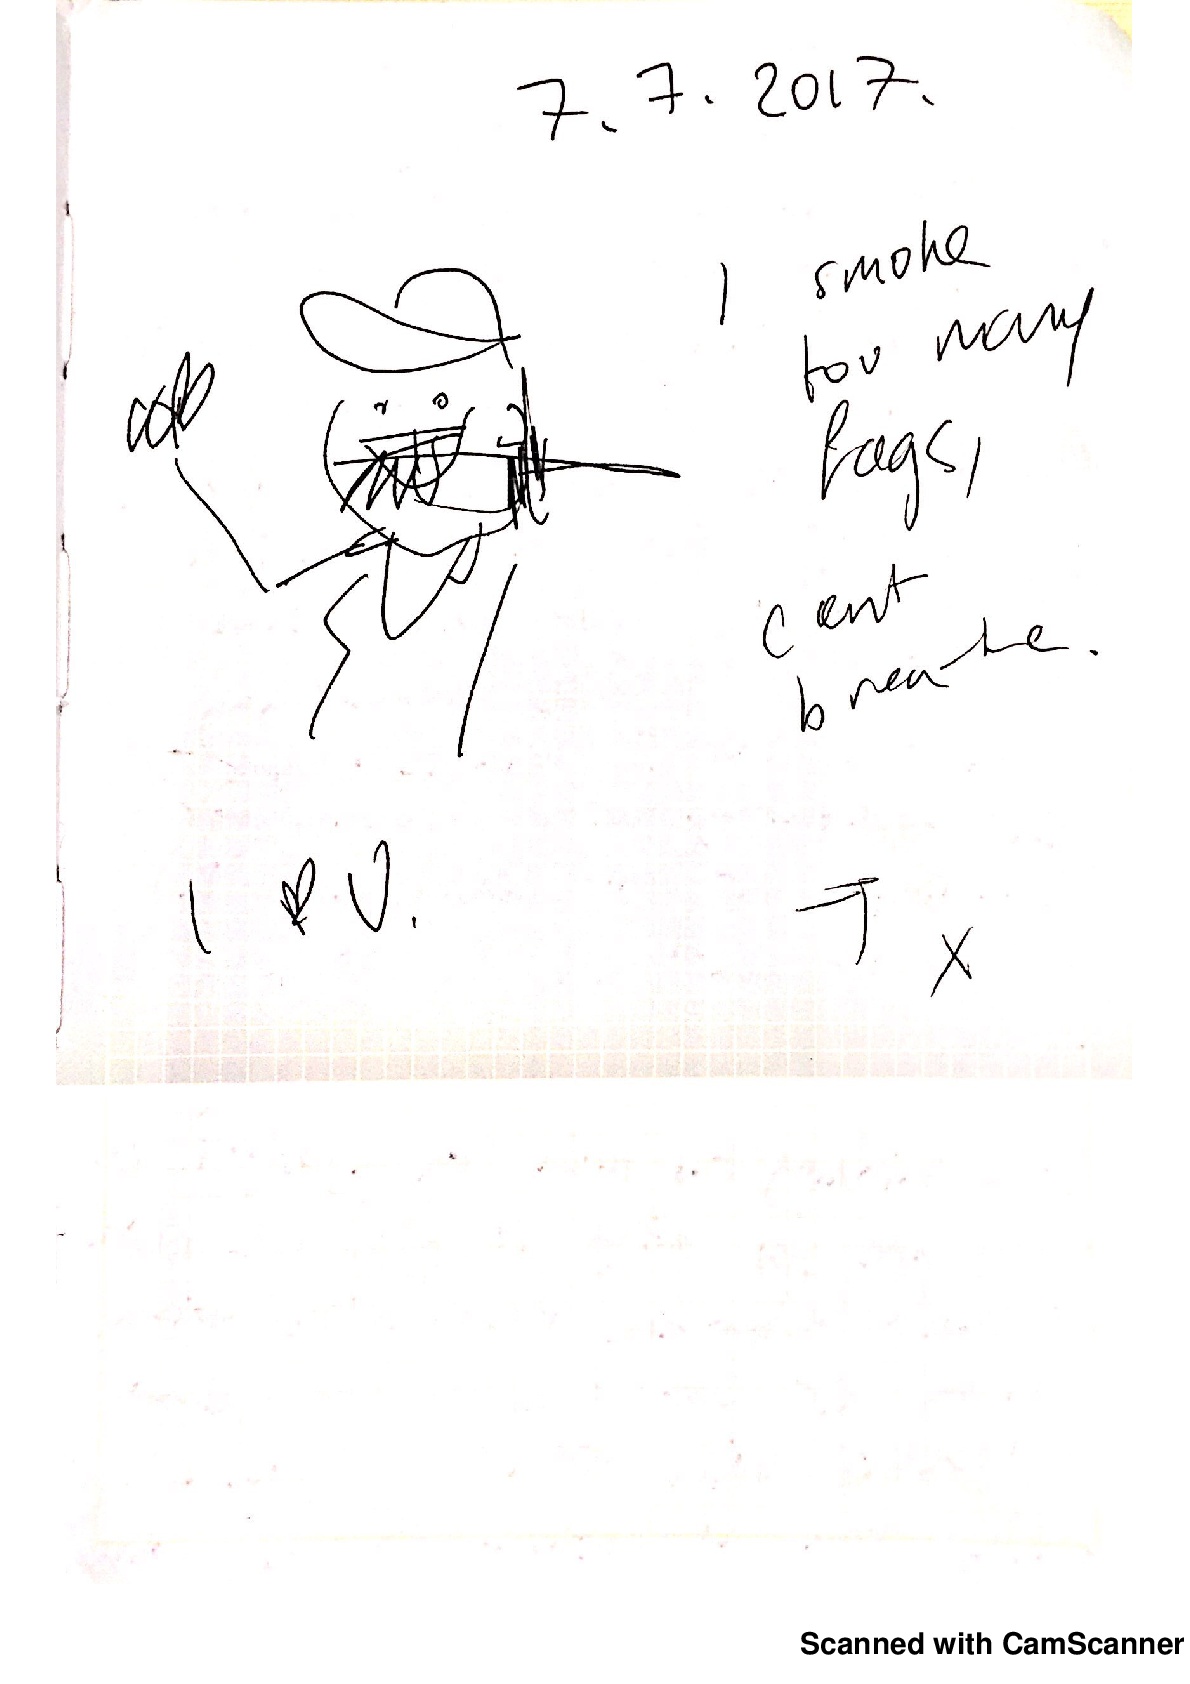 7. 7. 2017.
I smoke
too many
fags,
cant
breathe.
I ♥ U.
T x
Scanned with CamScanner